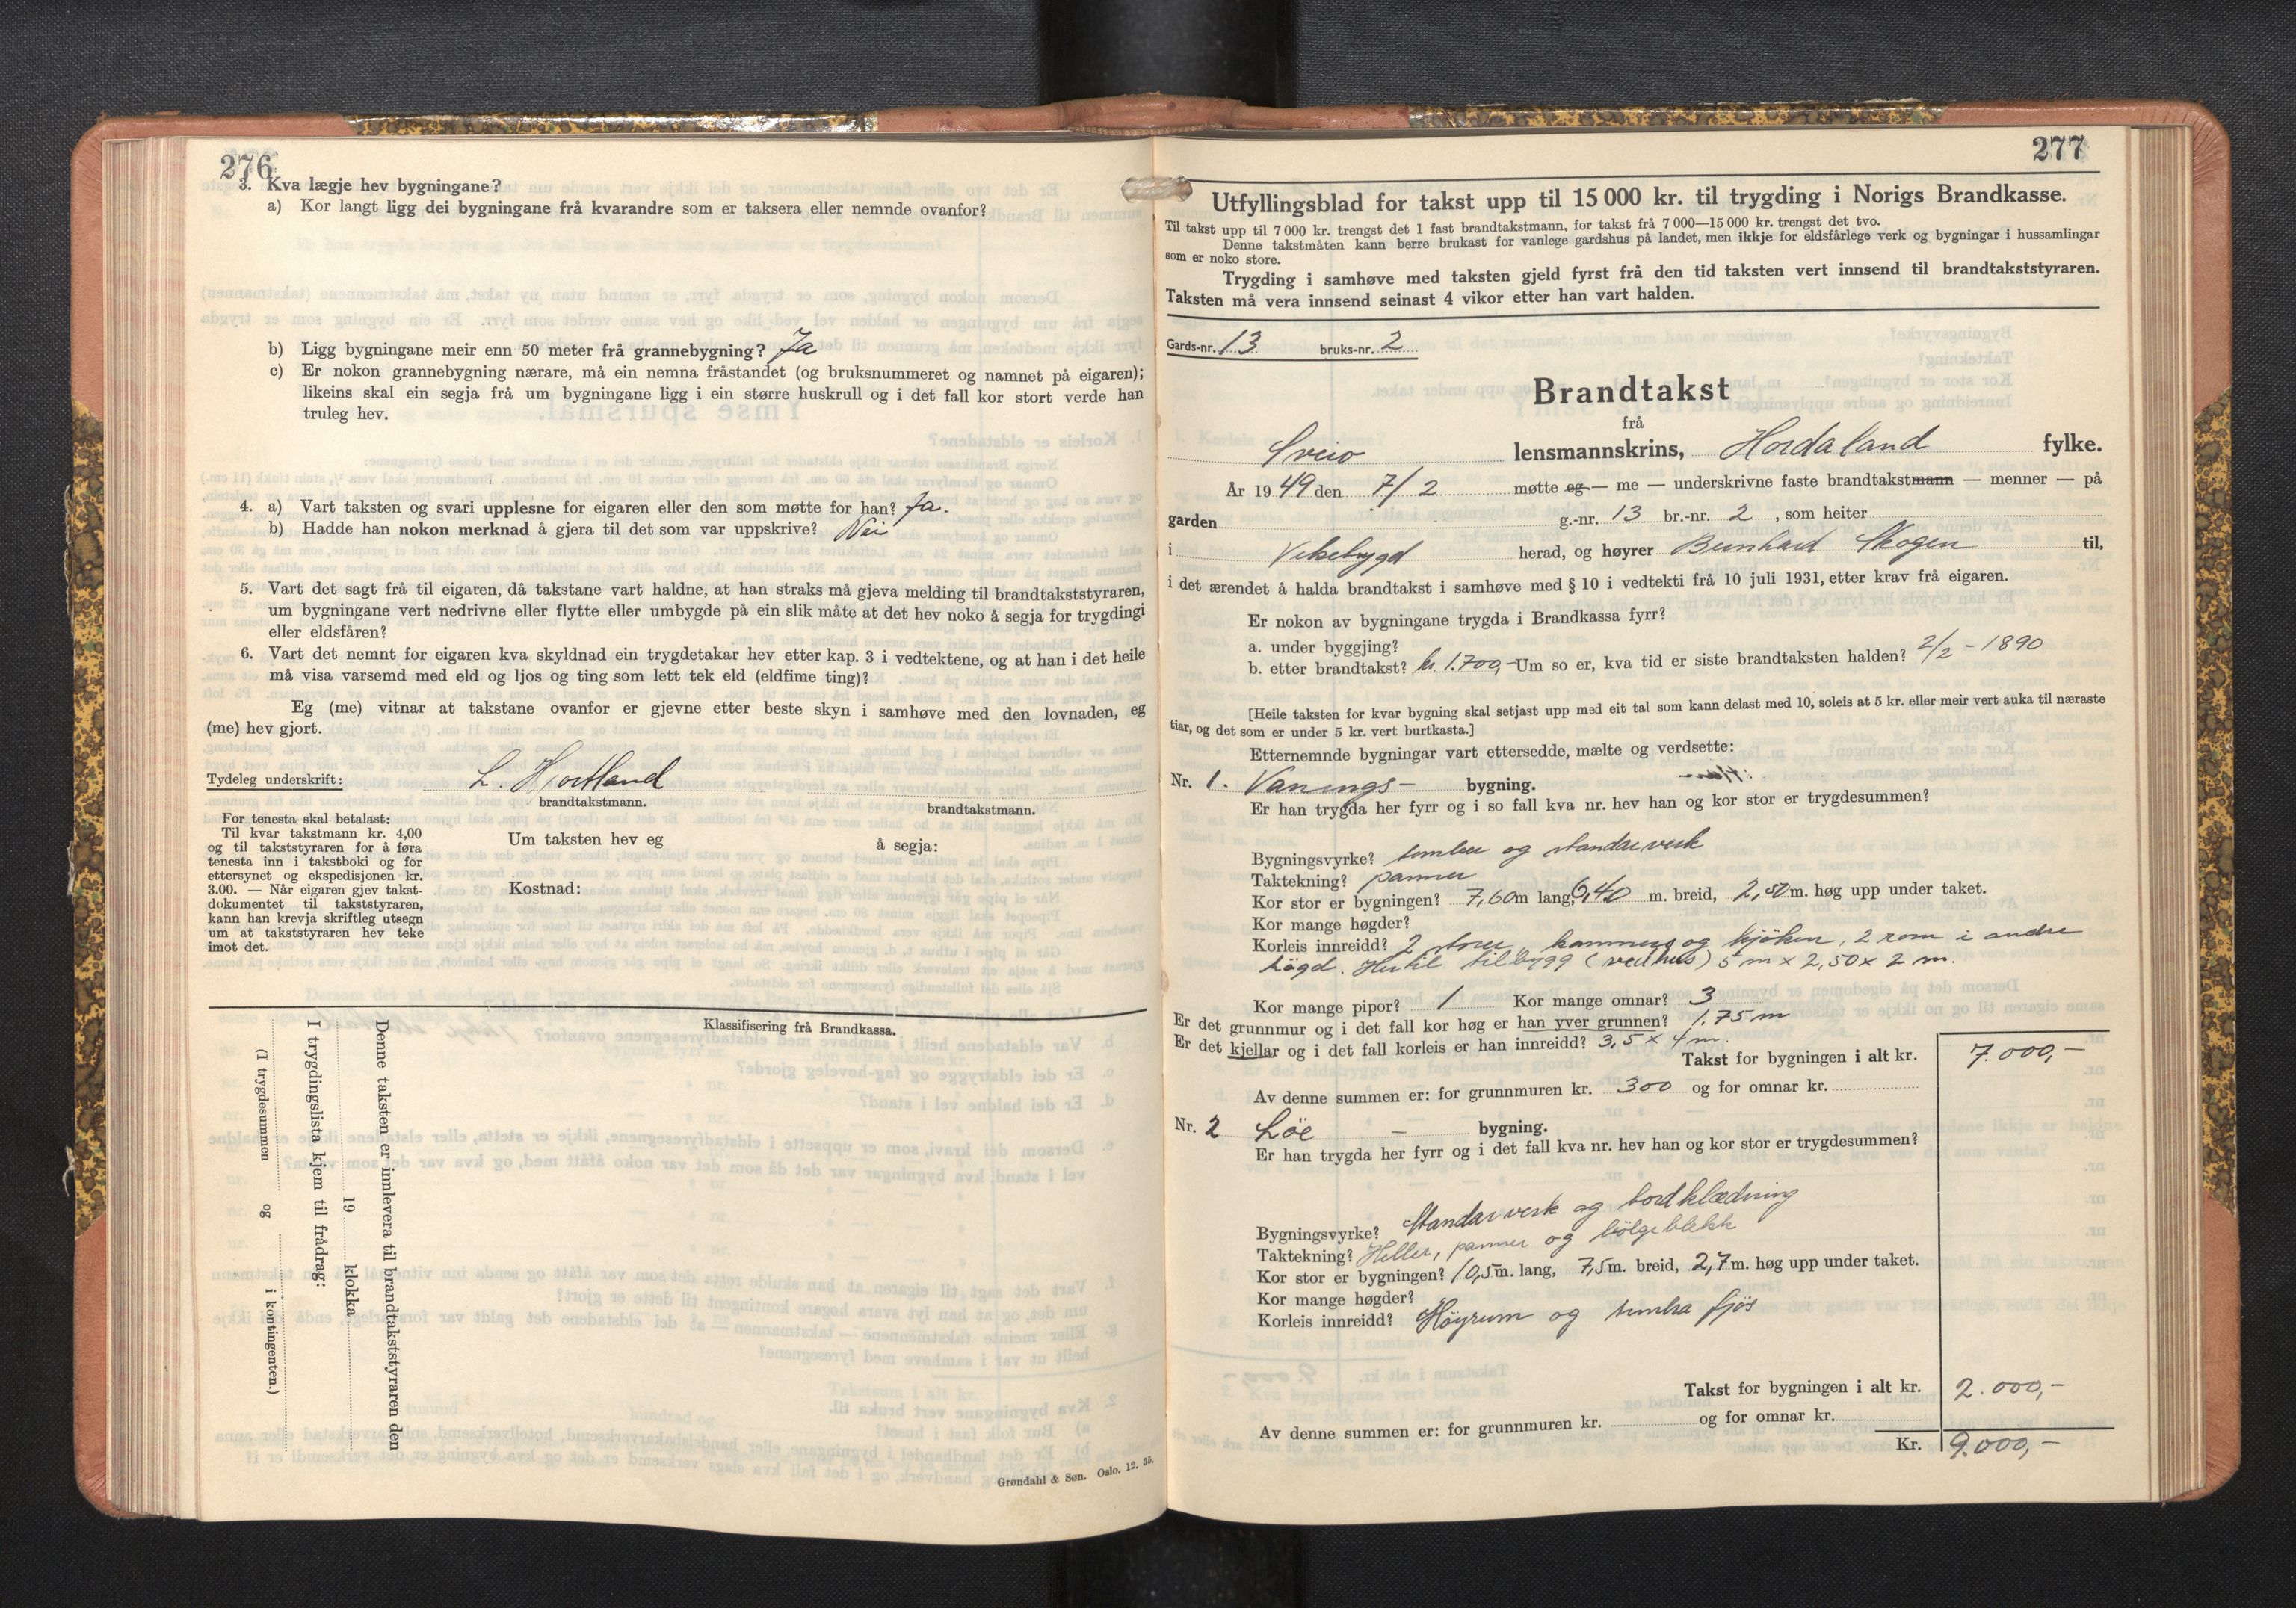 276
3. Kva lægje hev bygningane?
a) Kor langt ligg dei bygningane frå kvarandre som er taksera eller nemnde ovanfor?
b) Ligg bygningane meir enn 50 meter frå grannebygning? Ja
c) Er nokon grannebygning nærare, må ein nemna fråstandet (og bruksnummeret og namnet på eigaren);
likeins skal ein segja frå um bygningane ligg i ein større huskrull og i det fall kor stort verde han
truleg hev.
4. a) Vart taksten og svari upplesne for eigaren eller den som møtte for han? Ja.
b) Hadde han nokon merknad å gjera til det som var uppskrive? Nei
5. Vart det sagt frå til eigaren, då takstane vart haldne, at han straks må gjeva melding til brandtakststyraren,
um bygningane vert nedrivne eller flytte eller umbygde på ein slik måte at det hev noko å segja for trygdingi
eller eldsfåren?
6. Vart det nemnt for eigaren kva skyldnad ein trygdetakar hev etter kap. 3 i vedtektene, og at han i det heile
må visa varsemd med eld og ljos og ting som lett tek eld (eldfime ting)?
Eg (me) vitnar at takstane ovanfor er gjevne etter beste skyn i samhøve med den lovnaden, eg
(me) hev gjort.
Tydeleg underskrift: L. Hortland
brandtakstmann. brandtakstmann.
For tenesta skal betalast:
Til kvar takstmann kr. 4,00
og til takststyraren for å føra
tenesta inn i takstboki og for
ettersynet og ekspedisjonen kr.
3.00. — Når eigaren gjev takst-
dokumentet til takststyraren,
kann han krevja skriftleg utsegn
um at takststyraren hev teke
imot det.
Um taksten hev eg å segja:
Kostnad:
Klassifisering frå Brandkassa.
Denne taksten er innlevera til brandtakststyraren den
19 klokka
I trygdingslista kjem til frådrag:
(I trygdesummen og i kontingenten.)
Grøndahl & Søn. Oslo. 12. 35.
277
Utfyllingsblad for takst upp til 15 000 kr. til trygding i Norigs Brandkasse.
Til takst upp til 7 000 kr. trengst det 1 fast brandtakstmann, for takst frå 7 000—15 000 kr. trengst det tvo.
Denne takstmåten kann berre brukast for vanlege gardshus på landet, men ikkje for eldsfårlege verk og bygningar i hussamlingar
som er noko store.
Trygding i samhøve med taksten gjeld fyrst frå den tid taksten vert innsend til brandtakststyraren.
Taksten må vera innsend seinast 4 vikor etter han vart halden.
Gards-nr. 13 bruks-nr. 2
Brandtakst
frå
Sveio lensmannskrins, Hordaland fylke.
År 1949 den 7/2 møtte eg — me — underskrivne faste brandtakstmann — menner — på
garden g.-nr. 13 br.-nr. 2, som heiter
i Vikebygd herad, og høyrer Bernhard Skogen til,
i det ærendet å halda brandtakst i samhøve med § 10 i vedtekti frå 10 juli 1931, etter krav frå eigaren.
Er nokon av bygningane trygda i Brandkassa fyrr?
a. under byggjing?
b. etter brandtakst? kr. 1.700,- Um so er, kva tid er siste brandtaksten halden? 2/2 - 1890
[Heile taksten for kvar bygning skal setjast upp med eit tal som kann delast med 10, soleis at 5 kr. eller meir vert auka til næraste
tiar, og det som er under 5 kr. vert burtkasta.]
Etternemnde bygningar vart ettersedde, mælte og verdsette:
Nr. 1. Vanings- bygning.
Er han trygda her fyrr og i so fall kva nr. hev han og kor stor er trygdesummen?
Bygningsvyrke? tember og standarverk
Taktekning? panner
Kor stor er bygningen? 7,60 m lang, 6,40 m. breid, 2,50 m. høg upp under taket.
Kor mange høgder?
Korleis innreidd? 2 stover, kammers og kjöken, 2 rom i andre
högd. Hertil tilbygg (vedhus) 5 m x 2,50 x 2 m.
Kor mange pipor? 1 Kor mange omnar? 3
Er det grunnmur og i det fall kor høg er han yver grunnen? 1.75 m
Er det kjellar og i det fall korleis er han innreidd? 3,5 x 4 m.
Takst for bygningen i alt kr. 7.000,-
Av denne summen er: for grunnmuren kr. 300 og for omnar kr.
Nr. 2 Löe - bygning.
Er han trygda her fyrr og i det fall kva nr. hev han og kor stor er trygdesummen?
Bygningsvyrke? Standarverk og bordklædning
Taktekning? Heller, panner og bölgeblekk
Kor stor er bygningen? 10,5 m. lang, 7,5 m. breid, 2,7 m. høg upp under taket.
Kor mange høgder?
Korleis innreidd? Höyrum og tembra fjös
Takst for bygningen i alt kr. 2.000,-
Av denne summen er: for grunnmuren kr. og for omnar kr.
Kr. 9.000,-